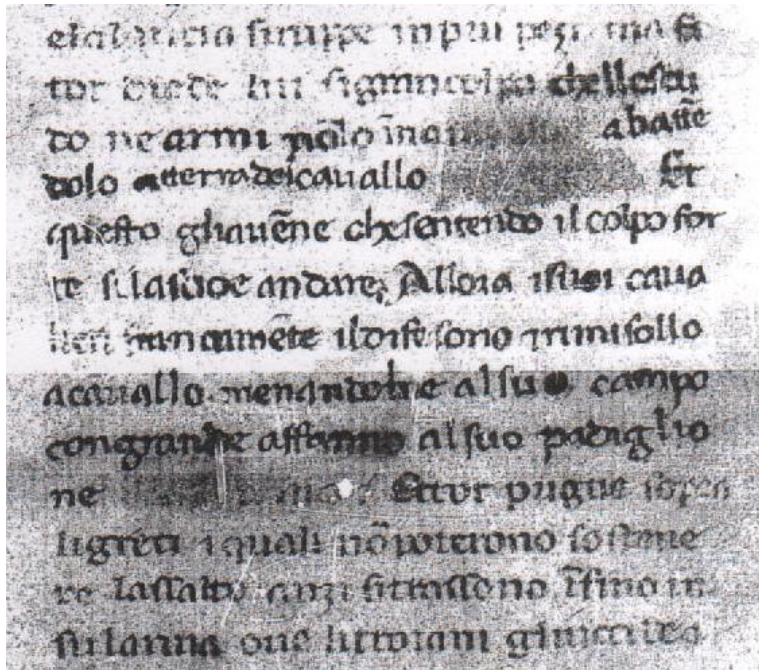 elalancia si ruppe in piu pezi ma Et
tor diede lui si gran colpo chello scu
do ne armi nōlo abattē
dolo atterra del cauallo Et
questo gliauēne chesentendo il colpo for
te si lascioe andare, Allora isuoi caua
lieri francamēte ildifesono rimisollo
acauallo menandolne alsuo campo
congrande affanno alsuo padiglio
ne Ettor pugne sopra
ligreci iquali nōpoterono sostene
re lassalto anzi fittassono īsino in
sularina oue littoiani